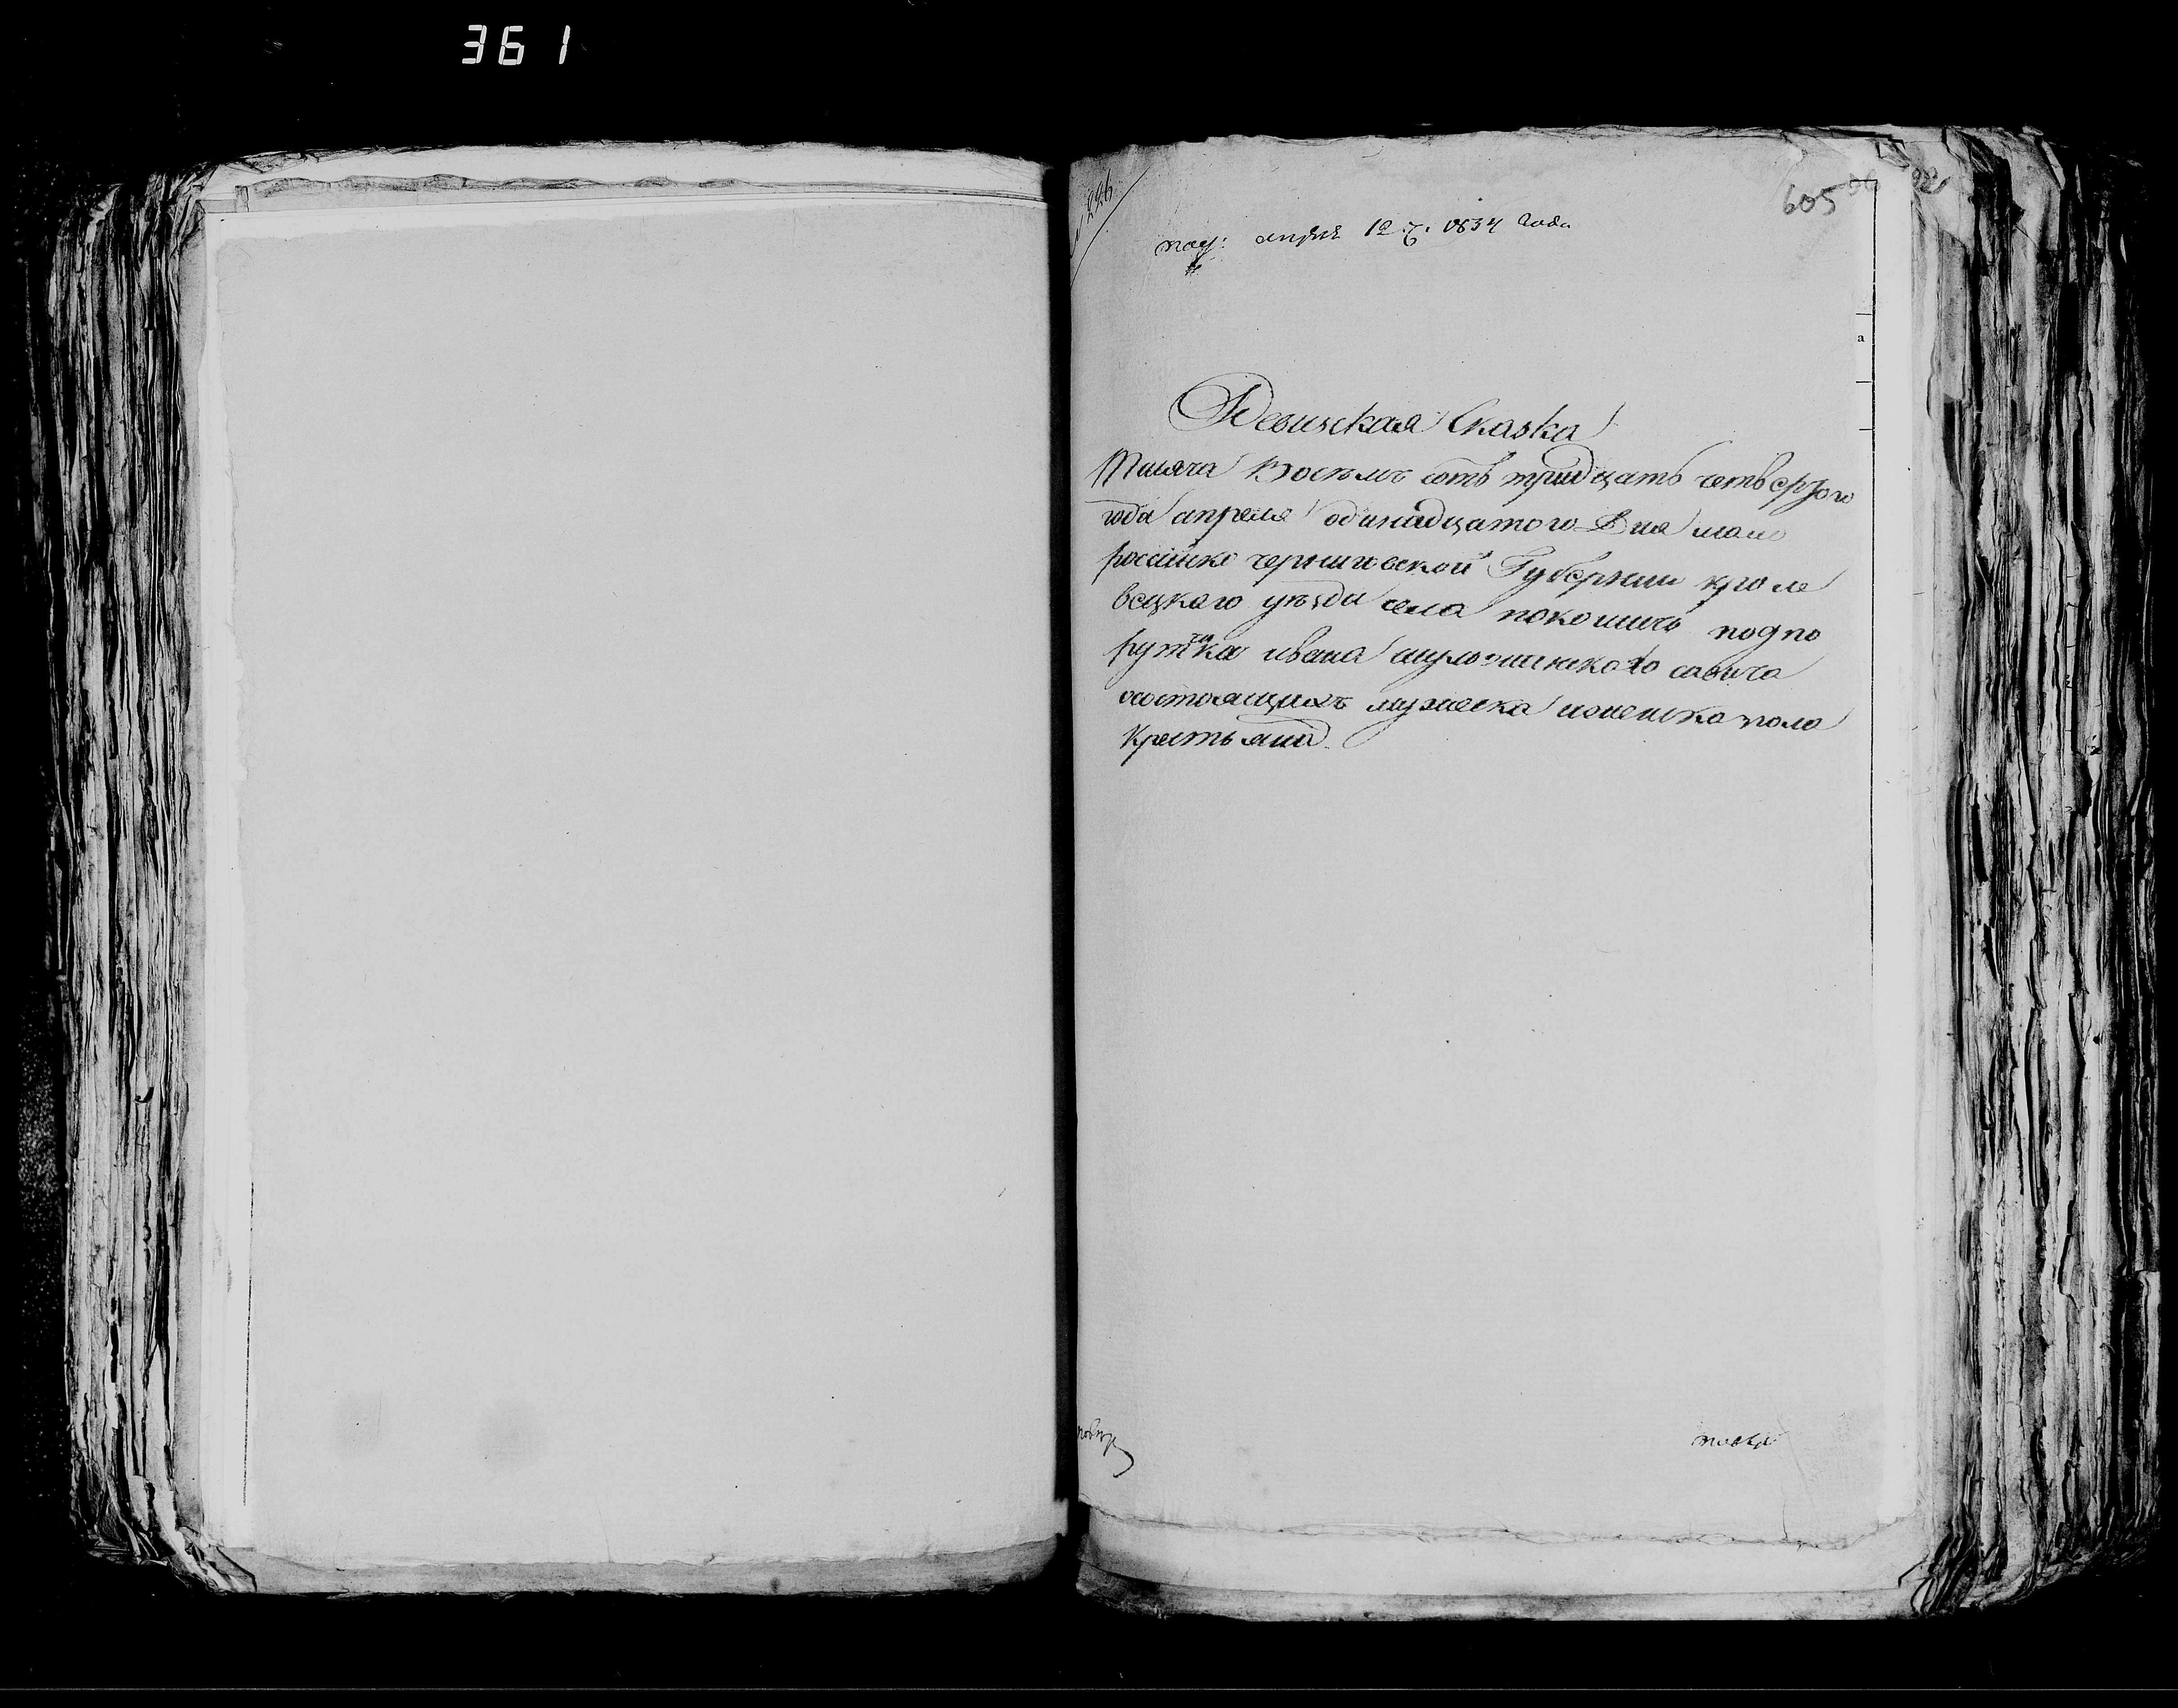 361
226
605
апреля 12 1834 года
Ревизская Сказка
Тисяча Восемъ сотъ тридцать четвертого
года апреля одинадцатого Дня мало
российско черниговской Губернии кроле
вецкого уезда села покошичъ подпо
рутчика ивана савича
состоящихъ мужеска иженска пола
Крестьянъ.